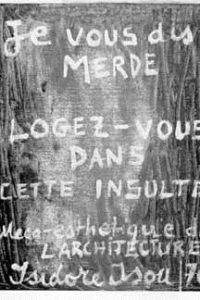 Je vous dis
MERDE
LOGEZ-VOUS
DANS
CETTE INSULTE
Meca-esthetique de
L'ARCHITECTURE
Isidore Isou